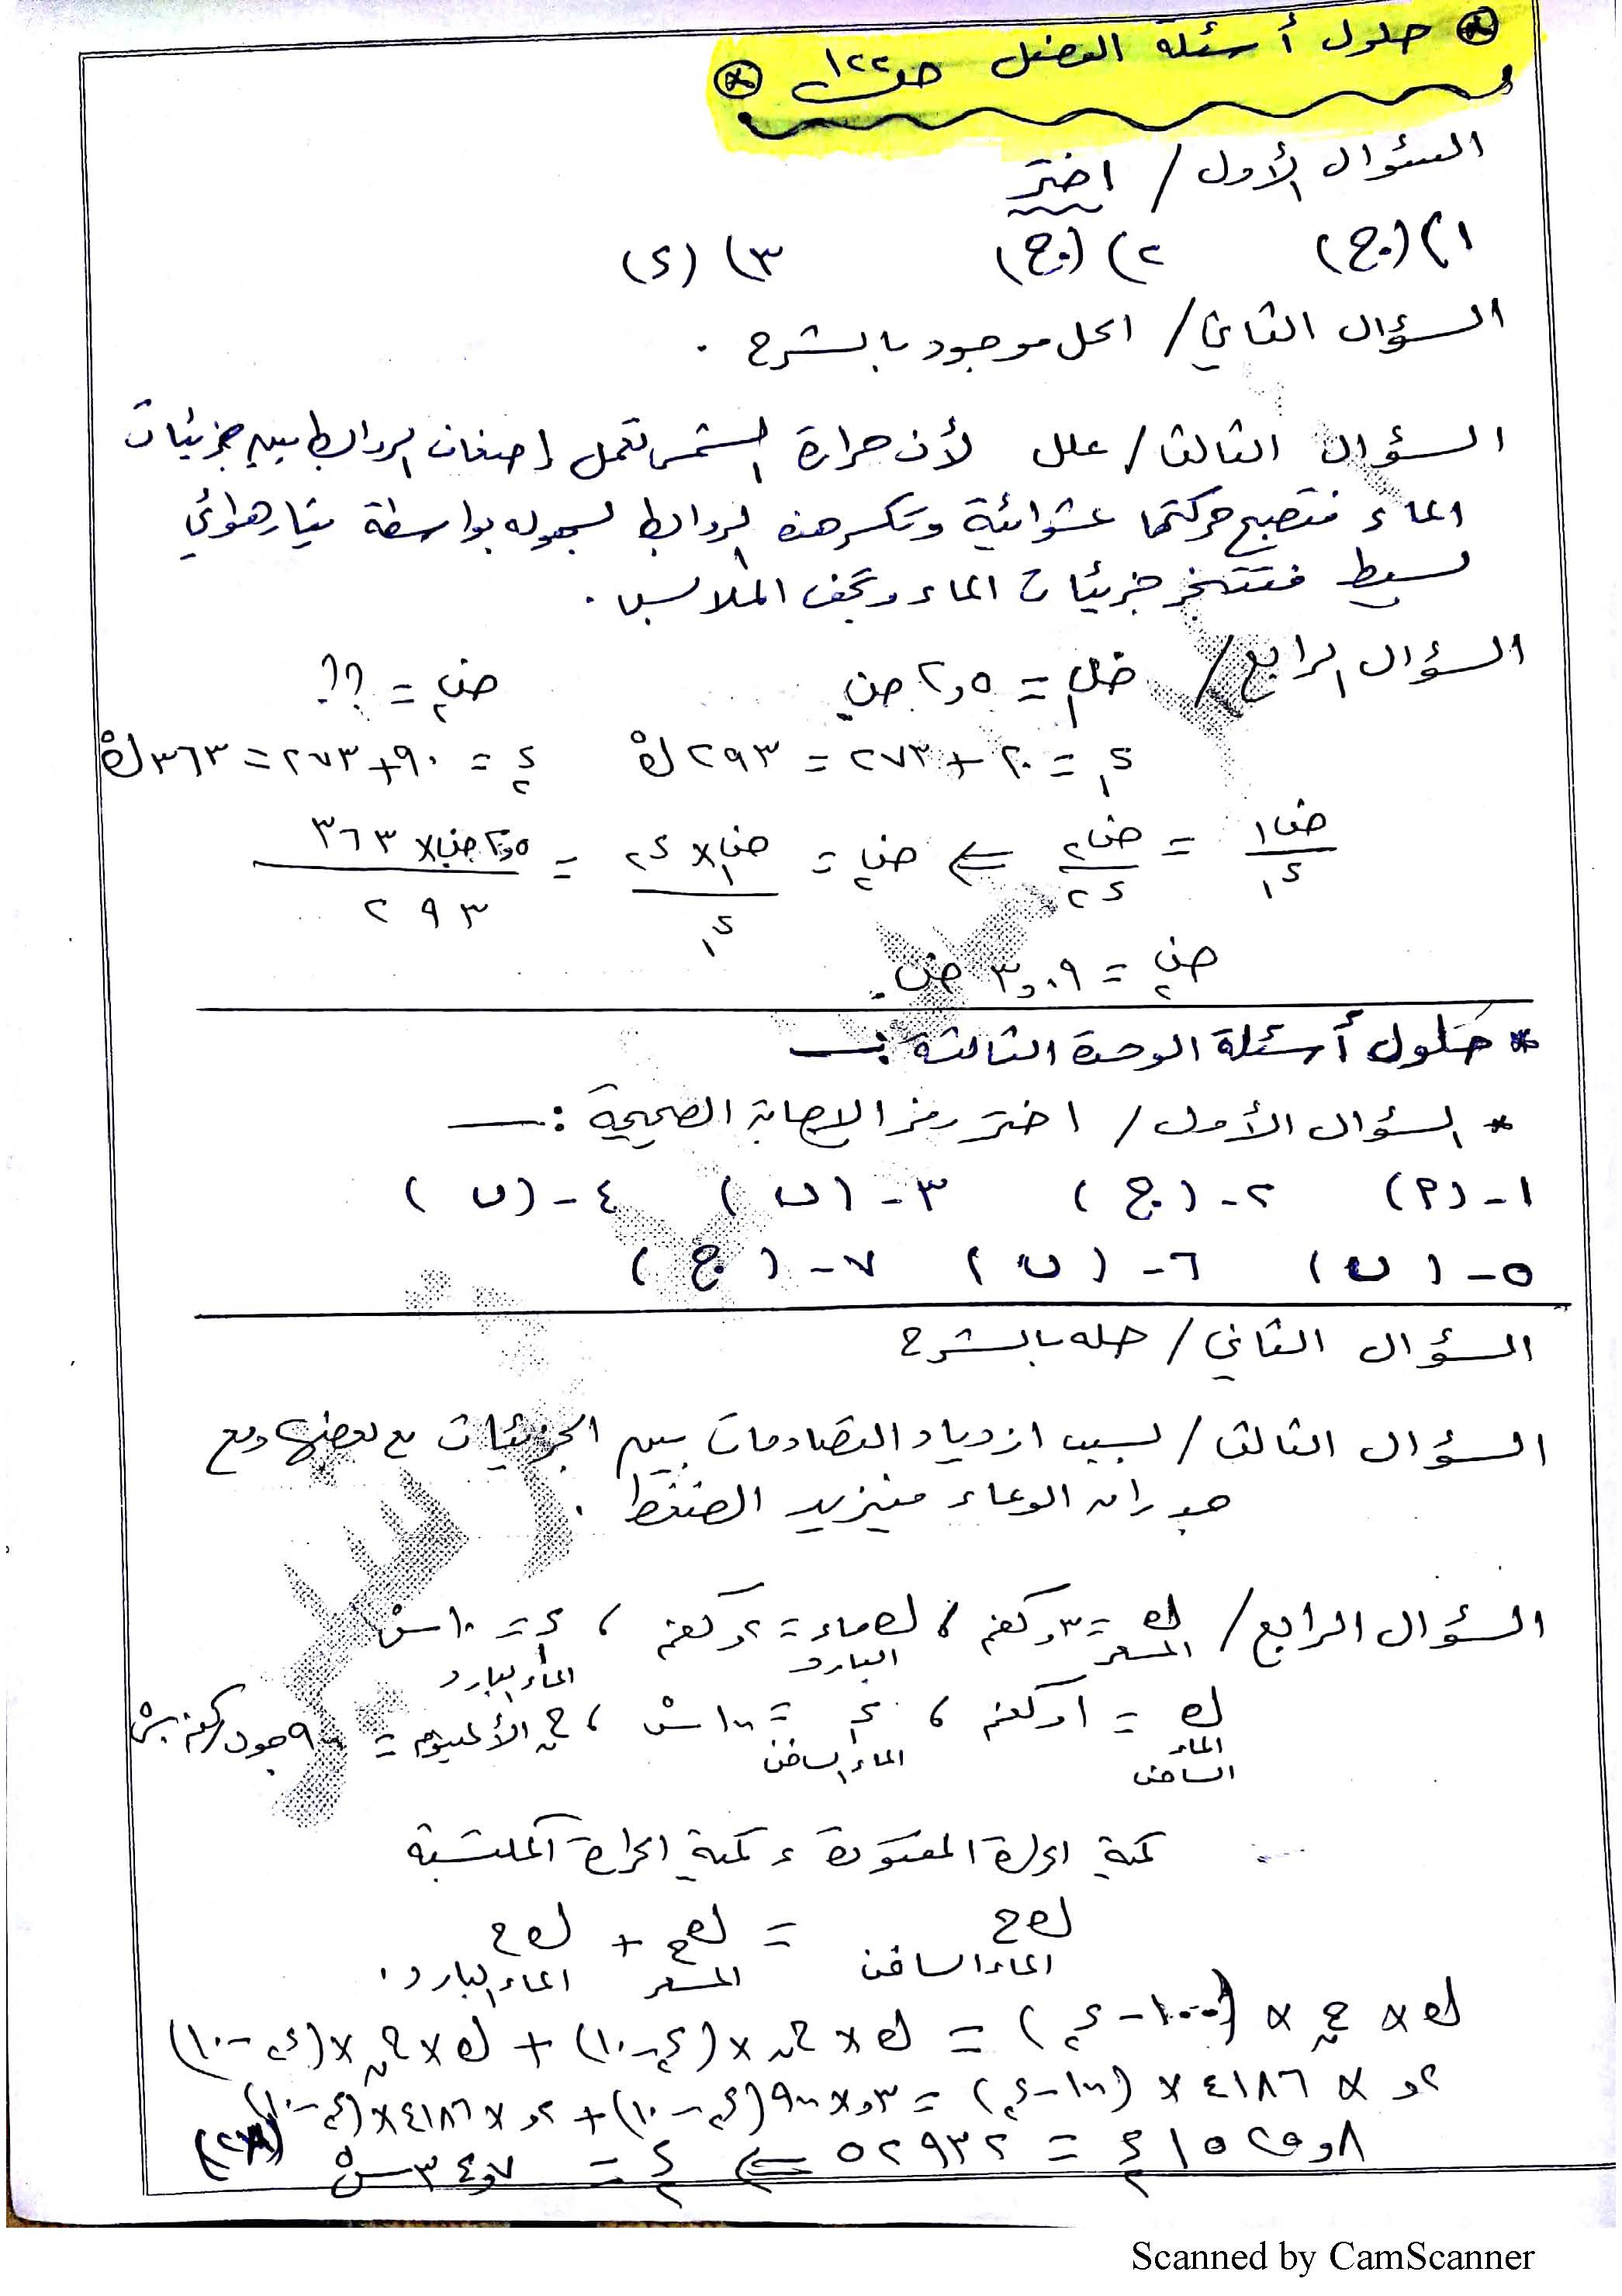 حلول أسئلة الفصل ص١٢٢
السؤال الأول / اختر
١) (ج) ٢) (ج) ٣) (د)
السؤال الثاني / الحل موجود بالشرح .
السؤال الثالث / علل لأن حرارة الشمس تعمل إضعاف الروابط بين جزيئات
الماء فتصبح حركتها عشوائية وتكسر هذه الروابط بسهولة بواسطة تيار هوائي
بسيط فتتبخر جزيئات الماء وتجف الملابس .
السؤال الرابع / ض١ = ٢,٥ ض.ج ض٢ = ؟؟
د١ = ٢٠ + ٢٧٣ = ٢٩٣ ك° د٢ = ٩٠ + ٢٧٣ = ٣٦٣ ك°
ض١/د١ = ض٢/د٢ ⇐ ض٢ = ض١ × د٢ / د١ = ٢,٥ ض.ج × ٣٦٣ / ٢٩٣
ض٢ = ٣,٠٩ ض.ج
* حلول أسئلة الوحدة الثالثة :ـ
* السؤال الأول / اختر رمز الإجابة الصحيحة :ـ
١- (أ) ٢- (ج) ٣- (ب) ٤- (ب)
٥- (ب) ٦- (ب) ٧- (ج)
السؤال الثاني / حله بالشرح
السؤال الثالث / بسبب ازدياد التصادمات بين الجزيئات مع بعضها ومع
جدران الوعاء فيزيد الضغط .
السؤال الرابع / ك المسعر = ٣,كغم ، ك ماء البارد = ٢,كغم ، د١ الماء البارد = ١٠ س°
ك الماء الساخن = ١,كغم ، د١ الماء الساخن = ١٠٠ س° ، حن الألمنيوم = ٩٠٠ جول/كغم.س°
كمية الحرارة المفقودة = كمية الحرارة المكتسبة
كح الماء الساخن = كح المسعر + كح الماء البارد .
ك × حن × (١٠٠ - د٢) = ك × حن × (د٢ - ١٠) + ك × حن × (د٢ - ١٠)
٢, × ٤١٨٦ × (١٠٠ - د٢) = ٣, × ٩٠٠ (د٢ - ١٠) + ٢, × ٤١٨٦ × (د٢ - ١٠)
د٢ = ٥٢٩٣٢ ⇐ د٢ = ٣٤,٧ س°
(٢٨)
Scanned by CamScanner